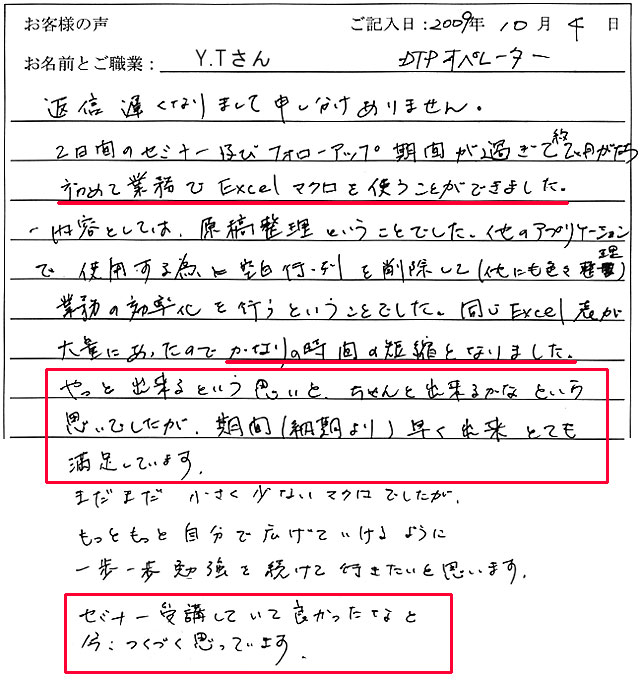 お客様の声 ご記入日:2009年 10月 4日
お名前とご職業: Y.Tさん DTPオペレーター
返信遅くなりまして申し分けありません。
2日間のセミナー及びフォローアップ期間が過ぎて約2ヶ月がたち
初めて業務でExcelマクロを使うことができました。
内容としては、原稿整理ということでした。他のアプリケーション
で使用する為に空白行・列を削除して(他にも色々整理
業務の効率化を行うということでした。同じExcel表が
大量にあったのでかなりの時間の短縮となりました。
やっと出来るという思いと、ちゃんと出来るかなという
思いでしたが、期間(納期より)早く出来とても
満足しています。
まだまだ小さく少ないマクロでしたが、
もっともっと自分で広げていけるように
一歩一歩勉強を続けて行きたいと思います。
セミナー受講していて良かったなと
今:つくづく思っています。